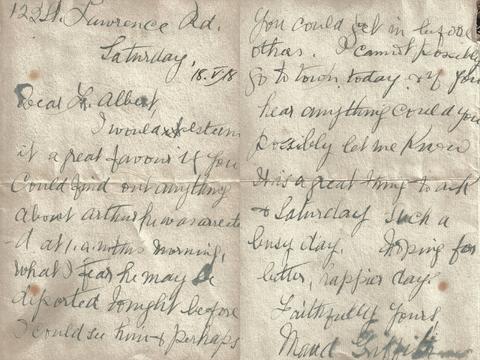 122 St. Lawrence Rd.
Saturday,
18.V.18
Dear Fr. Albert
I would esteem
it a great favour if you
could find out anything
about Arthur he was arreste
-d at 1 a.m. this morning,
what I fear he may be
deported tonight before
I could see him & perhaps
You could get in before
others. I cannot possibly
go to town today & if you
hear anything could you
possibly let me know
It is a great thing to ask
& Saturday such a
busy day. Hoping for
better, happier days.
Faithfully Yours,
Maud Griffith